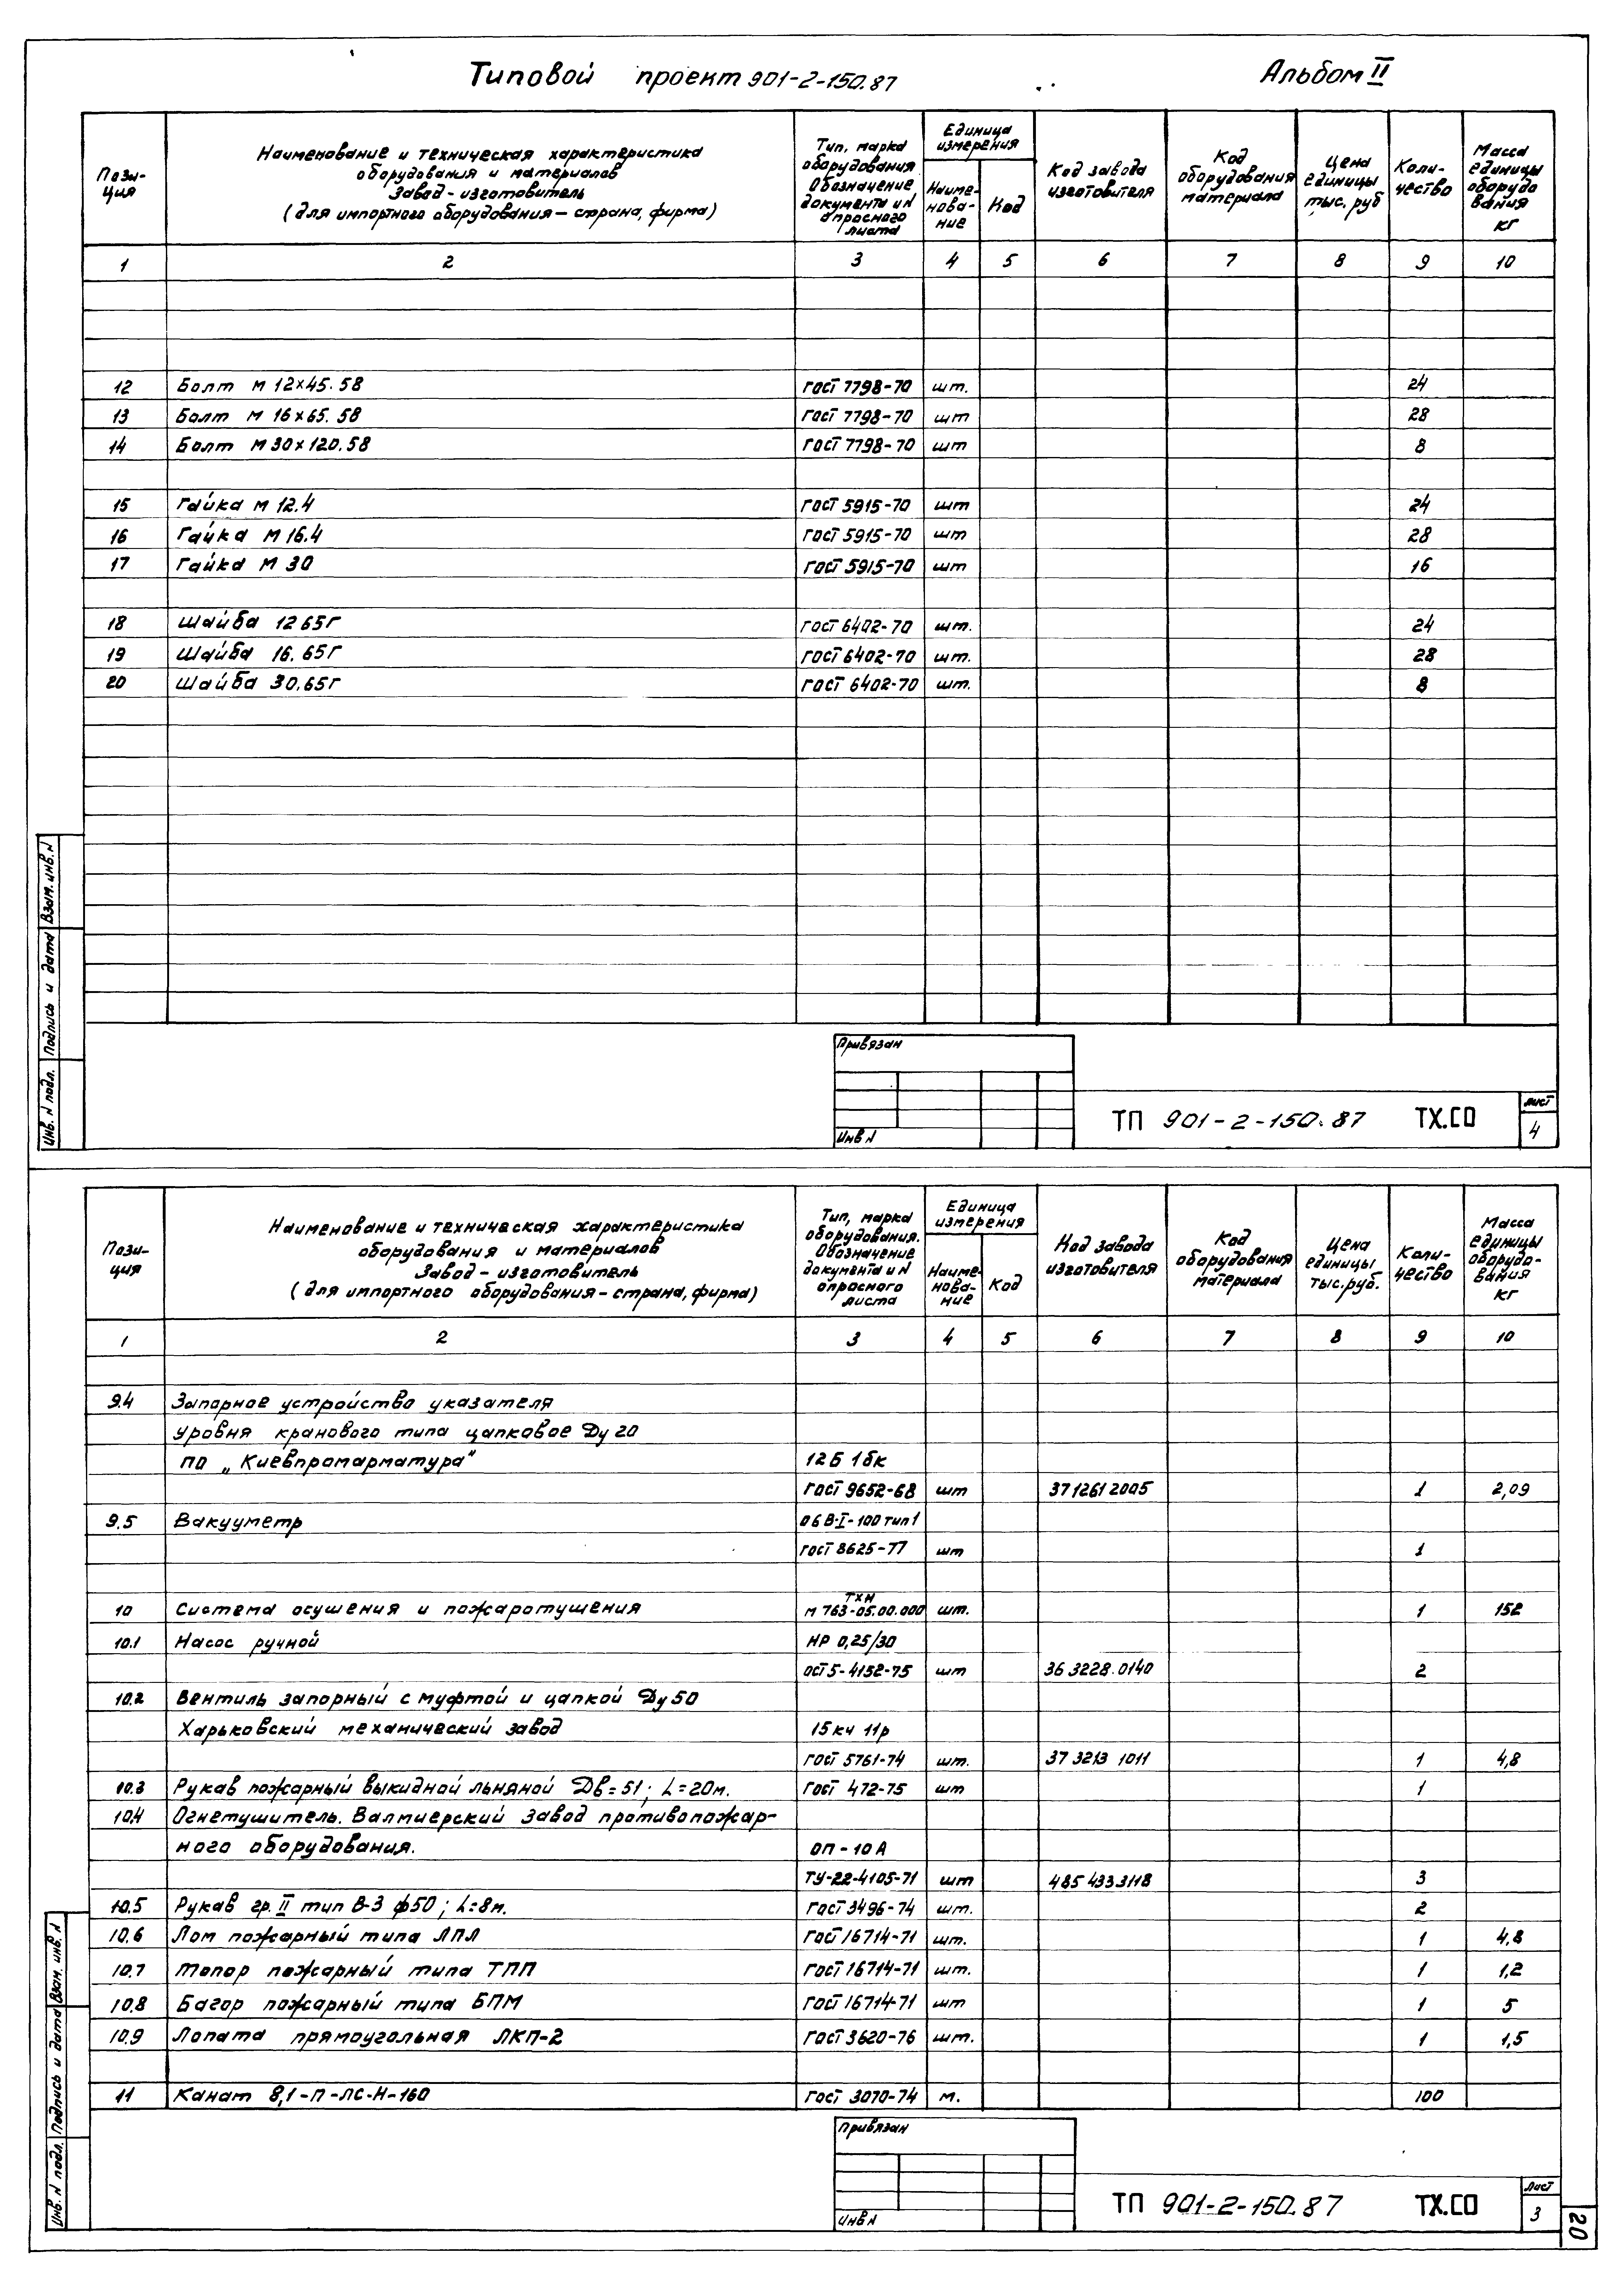 Типовой проект 901-2-150.87 Альбом II
Пози-
ция
Наименование и техническая характеристика
оборудования и материалов
Завод-изготовитель
(для импортного оборудования-страна, фирма)
Тип, марка
оборудования
Обозначение
документа и N
опросного
листа
Единица
измерения
Наиме-
нова-
ние
Код
Код завода
изготовителя
Код
оборудования
материала
Цена
единицы
тыс. руб
Коли-
чество
Масса
единицы
оборудо
вания
кг
1 2 3 4 5 6 7 8 9 10
12 Болт М 12×45.58 ГОСТ 7798-70 шт. 24
13 Болт М 16×65.58 ГОСТ 7798-70 шт 28
14 Болт М 30×120.58 ГОСТ 7798-70 шт 8
15 Гайка М 12.4 ГОСТ 5915-70 шт 24
16 Гайка М 16.4 ГОСТ 5915-70 шт 28
17 Гайка М 30 ГОСТ 5915-70 шт 16
18 Шайба 12 65Г ГОСТ 6402-70 шт. 24
19 Шайба 16. 65Г ГОСТ 6402-70 шт. 28
20 Шайба 30.65Г ГОСТ 6402-70 шт. 8
Инв. N подл. Подпись и дата Взам. инв. N
Привязан
Инв N
ТП 901-2-150.87 ТХ.СО
лист
4
Пози-
ция
Наименование и техническая характеристика
оборудования и материалов
Завод-изготовитель
(для импортного оборудования-страна, фирма)
Тип, марка
оборудования.
Обозначение
документа и N
опросного
листа
Единица
измерения
Наиме-
нова-
ние
Код
Код завода
изготовителя
Код
оборудования
материала
Цена
единицы
тыс.руб.
Коли-
чество
Масса
единицы
оборудо-
вания
кг
1 2 3 4 5 6 7 8 9 10
9.4 Запорное устройство указателя
уровня кранового типа цапковое Ду 20
ПО „Киевпромарматура" 12Б 1бк
ГОСТ 9652-68 шт 37 1261 2005 1 2,09
9.5 Вакууметр ОБВ-I-100 тип 1
ГОСТ 8625-77 шт 1
ТХН
10 Система осушения и пожаротушения М 763-05.00.000 шт. 1 152
10.1 Насос ручной НР 0,25/30
ОСТ 5-4152-75 шт 36 3228.0140 2
10.2 Вентиль запорный с муфтой и цапкой Ду 50
Харьковский механический завод 15кч 11р
ГОСТ 5761-74 шт. 37 3213 1011 1 4,8
10.3 Рукав пожарный выкидной льняной Дв=51; L=20м. ГОСТ 472-75 шт 1
10.4 Огнетушитель. Валмиерский завод противопожар-
ного оборудования. ОП-10А
ТУ-22-4105-71 шт 485 4333118 3
10.5 Рукав гр. II тип В-3 ф50; L=8м. ГОСТ 3496-74 шт. 2
10.6 Лом пожарный типа ЛПЛ ГОСТ 16714-71 шт. 1 4,8
10.7 Топор пожарный типа ТПП ГОСТ 16714-71 шт. 1 1,2
10.8 Багор пожарный типа БПМ ГОСТ 16714-71 шт 1 5
10.9 Лопата прямоугольная ЛКП-2 ГОСТ 3620-76 шт. 1 1,5
11 Канат 8,1-П-ЛС-Н-160 ГОСТ 3070-74 м. 100
Инв. N подл. Подпись и дата Взам. инв. N
Привязан
Инв N
ТП 901-2-150.87 ТХ.СО
лист
3
20